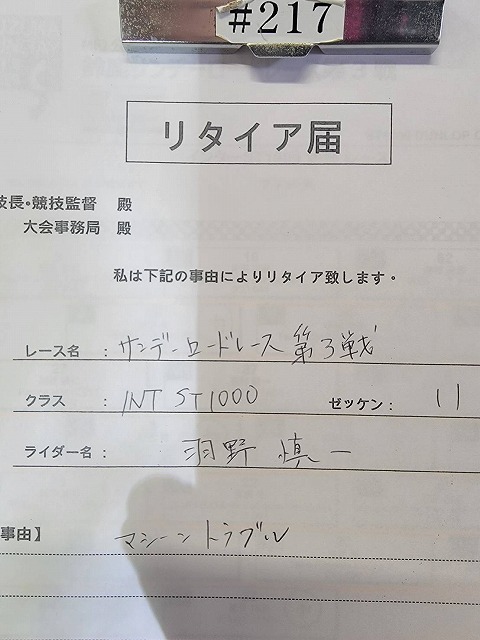 #217
リタイア届
技長・競技監督 殿
大会事務局 殿
私は下記の事由によりリタイア致します。
レース名 : サンデーロードレース 第3戦
クラス : INT ST1000 ゼッケン: 11
ライダー名 : 羽野 慎一
事由】
マシーントラブル